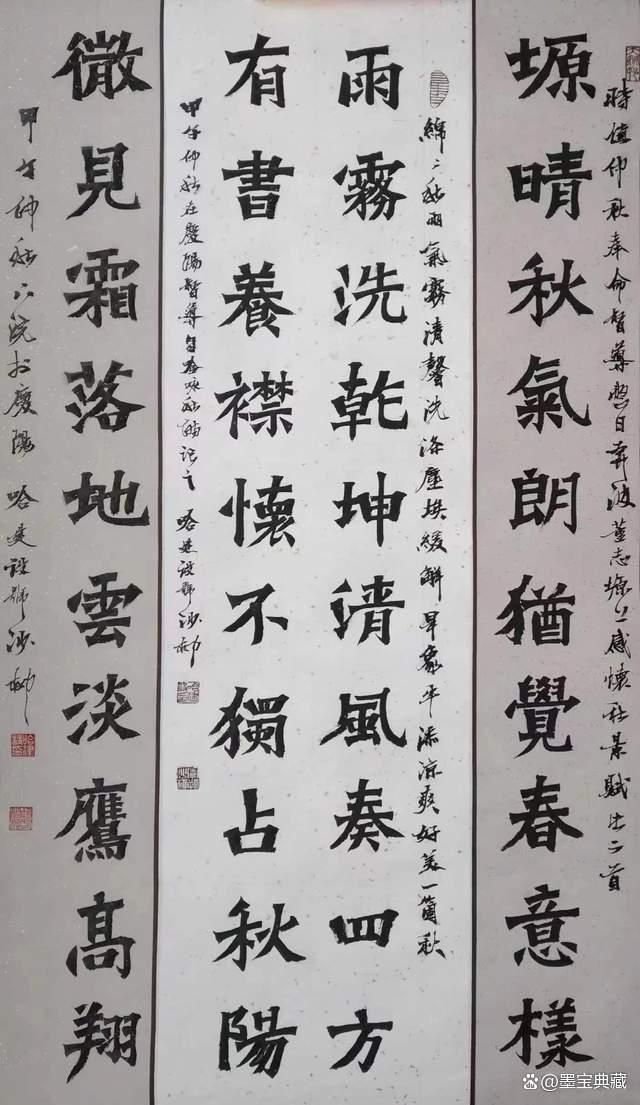 時值仲秋奉命督導日奔波董志塬上感懷秋景賦此二首
塬晴秋氣朗猶覺春意樣
綿〻秋雨氣霧清馨洗滌塵埃緩解旱象平添涼爽好美一箇秋
雨霧洗乾坤清風奏四方
有書養襟懷不獨占秋陽
甲午仲秋在慶陽督導詠秋記之 哈建設號沙柳
微見霜落地雲淡鷹髙翔
甲午仲秋於慶陽 哈建設號沙柳
@墨宝典藏